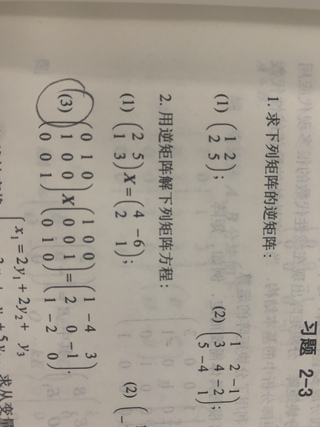 习题 2-3
1. 求下列矩阵的逆矩阵：
(1) (1 2
2 5);
(2) (1 2 -1
3 4 -2
5 -4 1);
2. 用逆矩阵解下列矩阵方程：
(1) (2 5
1 3) X = (4 -6
2 1);
(2)
(3) (0 1 0
1 0 0
0 0 1) X (1 0 0
0 0 1
0 1 0) = (1 -4 3
2 0 -1
1 -2 0).
x₁ = 2y₁ + 2y₂ + y₃
求从变量